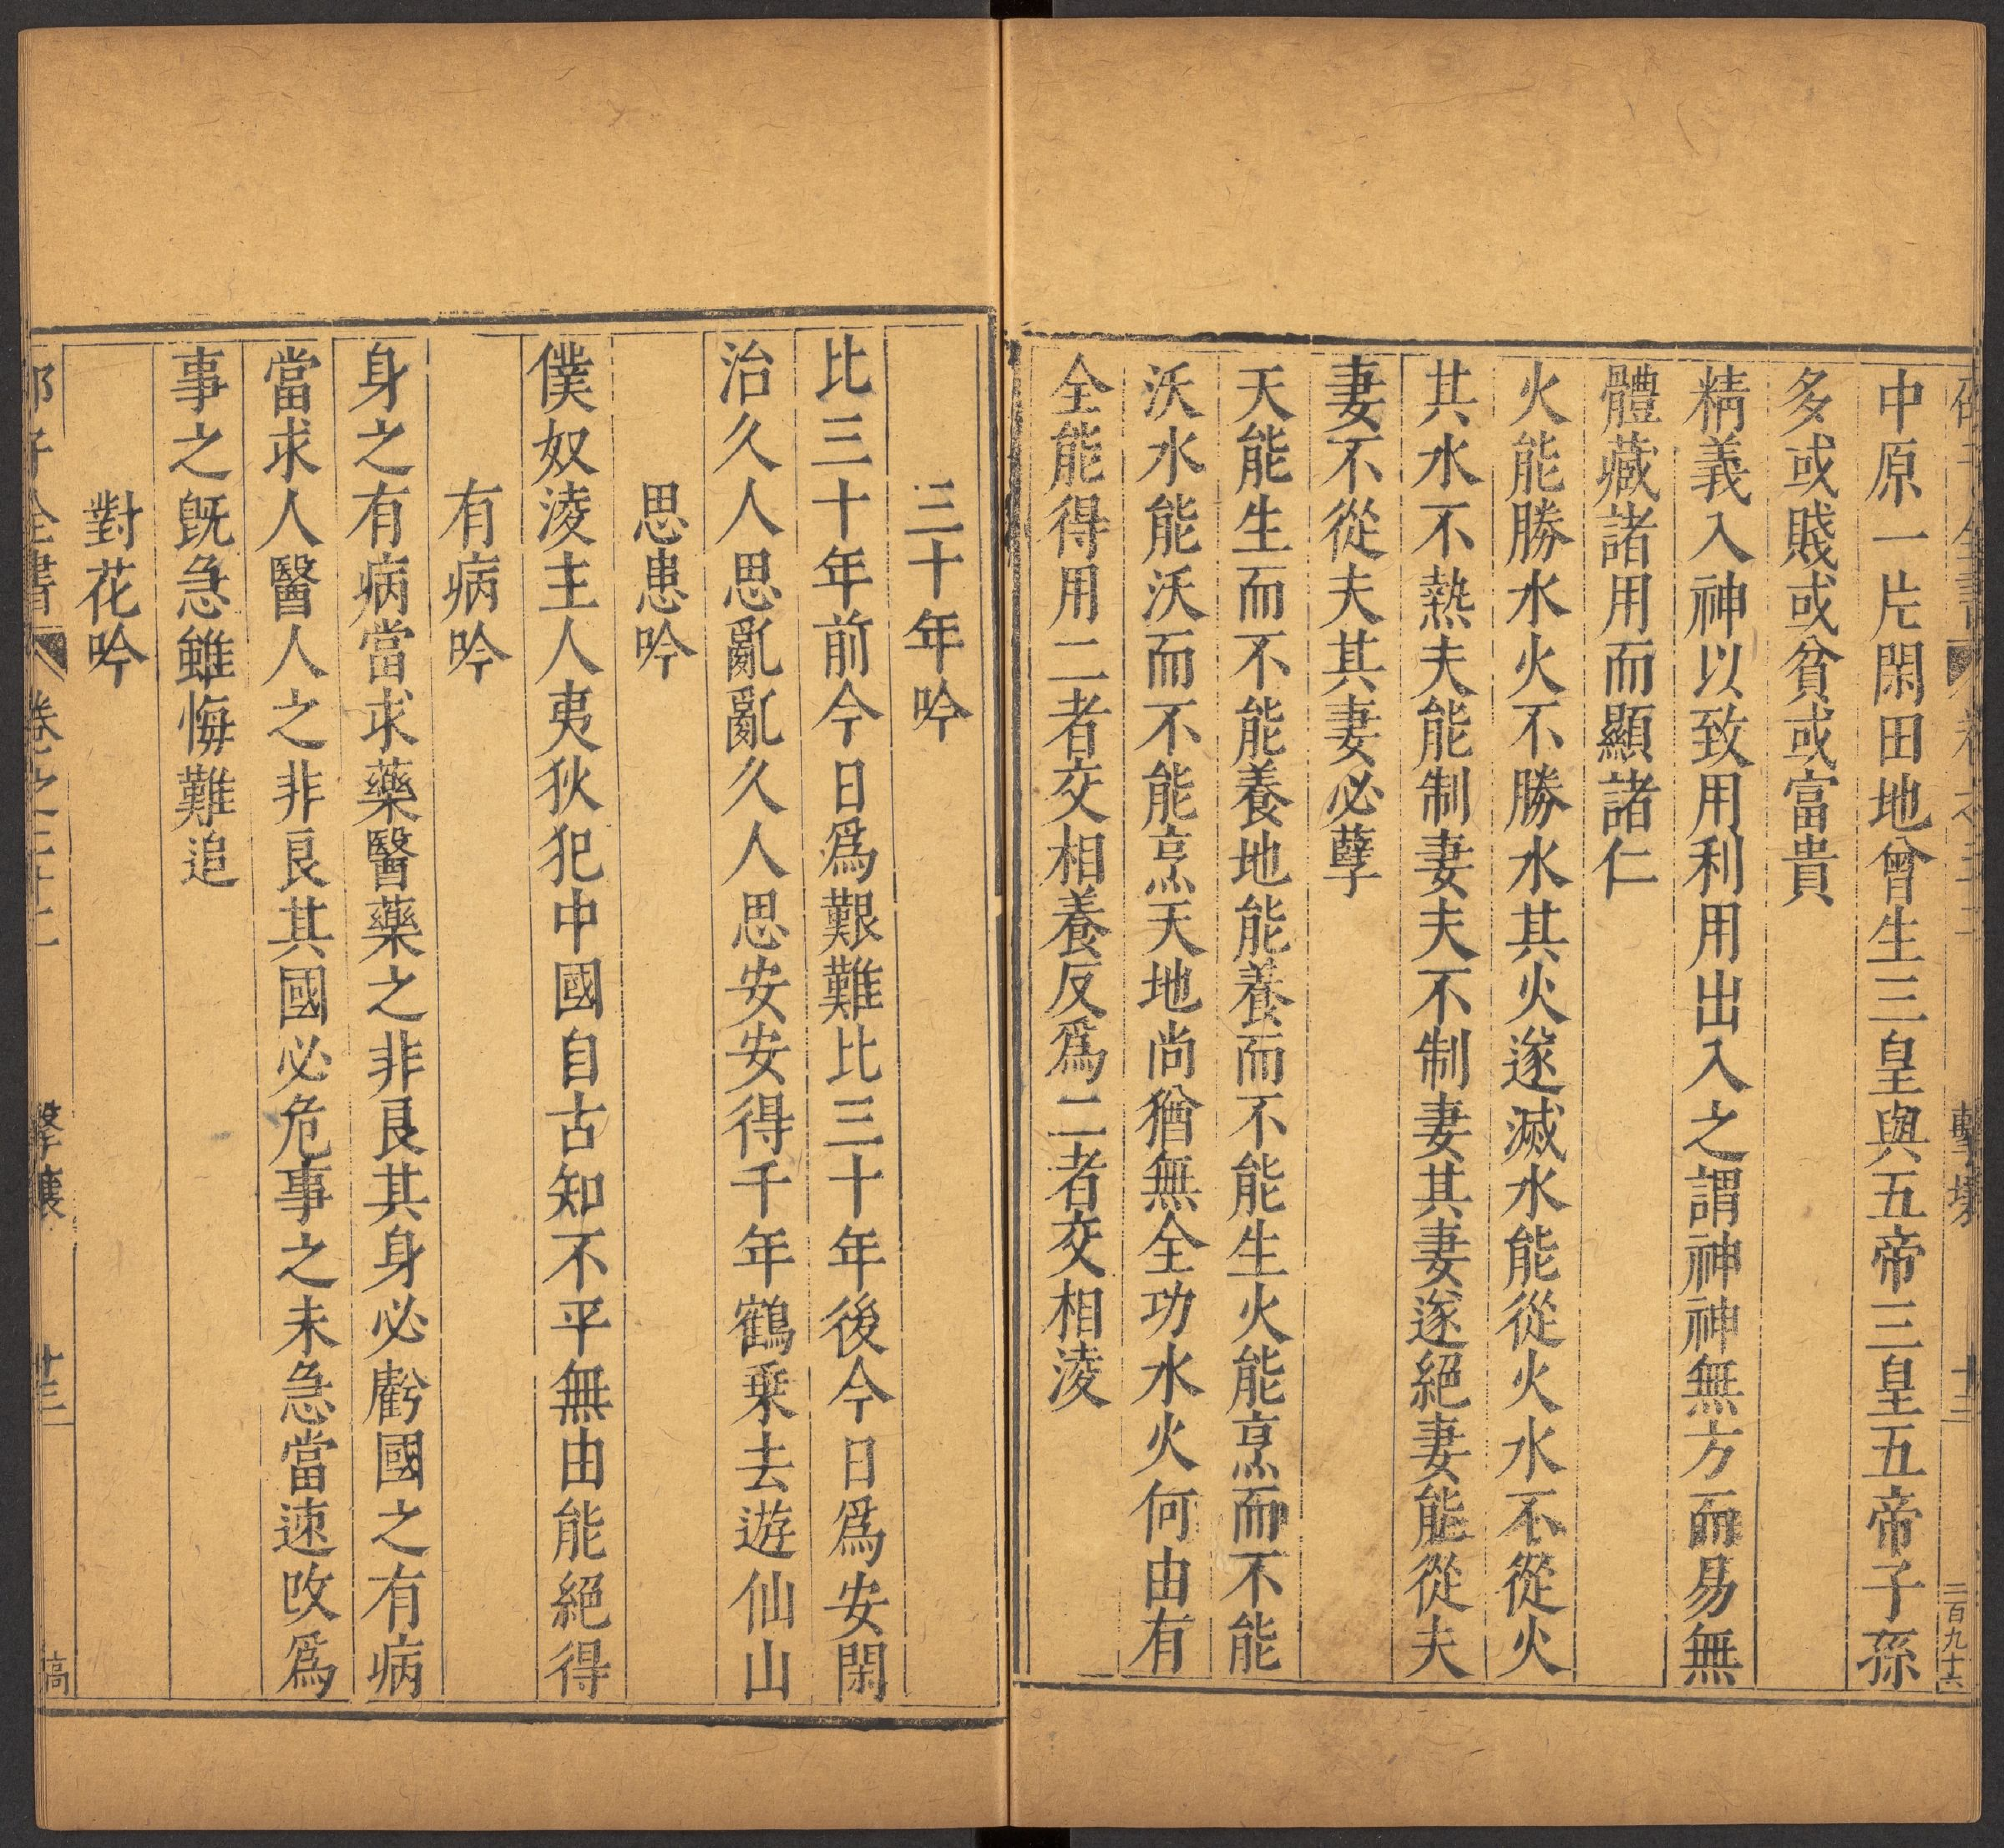 子全書 卷之二十二 擊壤 十二 二百九十六
中原一片閑田地曾生三皇與五帝三皇五帝子孫
多或賤或貧或富貴
精義入神以致用利用出入之謂神神無方而易無
體藏諸用而顯諸仁
火能勝水火不勝水其火遂滅水能從火水不從火
其水不熱夫能制妻夫不制妻其妻遂絕妻能從夫
妻不從夫其妻必孽
天能生而不能養地能養而不能生火能烹而不能
沃水能沃而不能烹天地尚猶無全功水火何由有
全能得用二者交相養反爲二者交相淩
三十年吟
比三十年前今日爲艱難比三十年後今日爲安閑
治久人思亂亂久人思安安得千年鶴乗去遊仙山
思患吟
僕奴淩主人夷狄犯中國自古知不平無由能絕得
有病吟
身之有病當求藥醫藥之非良其身必虧國之有病
當求人醫人之非良其國必危事之未急當速攺爲
事之旣急雖悔難追
對花吟
子全書 卷之二十二 擊壤 十三 稿